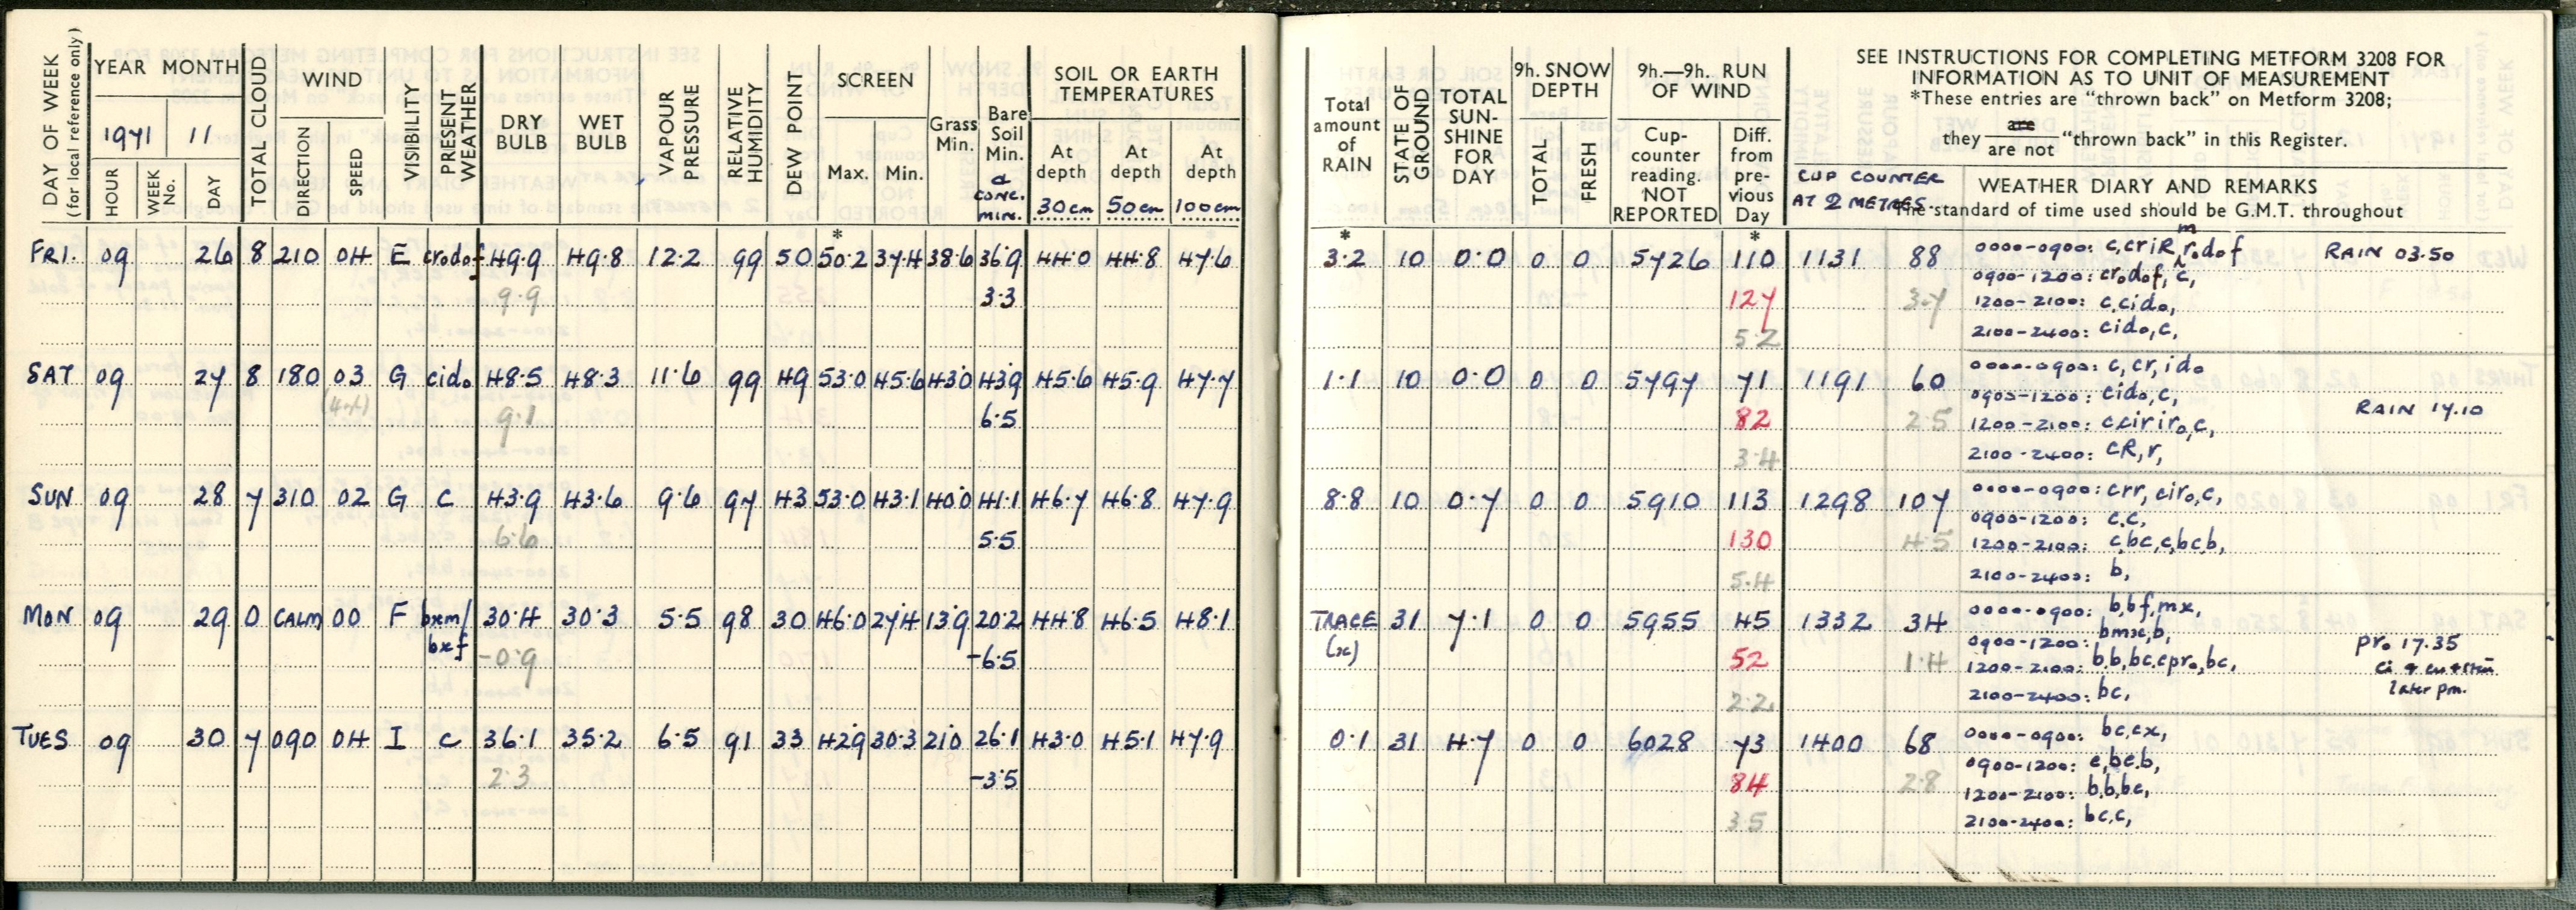 DAY OF WEEK
(for local reference only)
YEAR MONTH
1971 11
HOUR
WEEK No.
DAY
TOTAL CLOUD
WIND
DIRECTION
SPEED
VISIBILITY
PRESENT WEATHER
DRY BULB
WET BULB
VAPOUR PRESSURE
RELATIVE HUMIDITY
DEW POINT
SCREEN
Max. Min.
Grass Min.
Bare Soil Min.
CONC. MIN.
SOIL OR EARTH TEMPERATURES
At depth 30cm
At depth 50cm
At depth 100cm
FRI. 09 26 8 210 04 E crodof 49.9 49.8 12.2 99 50 50.2 37.4 38.6 36.9 44.0 44.8 47.6
9.9 3.3
SAT 09 27 8 180 03 G cido 48.5 48.3 11.6 99 49 53.0 45.6 43.0 43.9 45.6 45.9 47.7
9.1 6.5
SUN 09 28 7 310 02 G c 43.9 43.6 9.6 97 43 53.0 43.1 40.0 41.1 46.7 46.8 47.9
6.6 5.5
MON 09 29 0 CALM 00 F bxm/ 30.4 30.3 5.5 98 30 46.0 27.4 13.9 20.2 44.8 46.5 48.1
bxf -0.9 -6.5
TUES 09 30 7 090 04 I c 36.1 35.2 6.5 91 33 42.9 30.3 21.0 26.1 43.0 45.1 47.9
2.3 -3.5
Total amount of RAIN
STATE OF GROUND
TOTAL SUN-SHINE FOR DAY
9h. SNOW DEPTH
TOTAL
FRESH
9h.—9h. RUN OF WIND
Cup-counter reading. NOT REPORTED
Diff. from pre-vious Day
SEE INSTRUCTIONS FOR COMPLETING METFORM 3208 FOR
INFORMATION AS TO UNIT OF MEASUREMENT
*These entries are "thrown back" on Metform 3208;
they are / are not "thrown back" in this Register.
CUP COUNTER
AT 2 METRES
WEATHER DIARY AND REMARKS
The standard of time used should be G.M.T. throughout
3.2 10 0.0 0 0 5726 110 1131 88 0000-0900: c,criR,rodof RAIN 03.50
0900-1200: crodof, c,
127 3.7 1200-2100: c,cido,
5.2 2100-2400: cido,c,
1.1 10 0.0 0 0 5797 71 1191 60 0000-0900: c,cr,ido
0900-1200: cido,c, RAIN 17.10
82 2.5 1200-2100: cciriro,c,
3.4 2100-2400: cR,r,
8.8 10 0.7 0 0 5910 113 1298 107 0000-0900: crr, ciro,c,
0900-1200: c.c,
130 4.5 1200-2100: c,bc,c,bcb,
5.4 2100-2400: b,
TRACE 31 7.1 0 0 5955 45 1332 34 0000-0900: b,bf,mx,
(x) 0900-1200: bmx,b, pro 17.35
52 1.4 1200-2100: b,b,bc.cpro,bc,
later pm.
2.2 2100-2400: bc,
0.1 31 4.7 0 0 6028 73 1400 68 0000-0900: bc,cx,
0900-1200: c,bc.b,
84 2.8 1200-2100: b,b,bc,
3.5 2100-2400: bc,c,